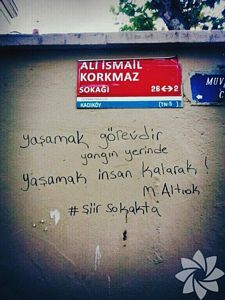 ALİ İSMAİL
KORKMAZ
SOKAĞI
26↔2
KADIKÖY
(TN-5)
MUV
yaşamak görevdir
yangın yerinde
yaşamak insan kalarak!
M. Altıok
#şiir sokakta